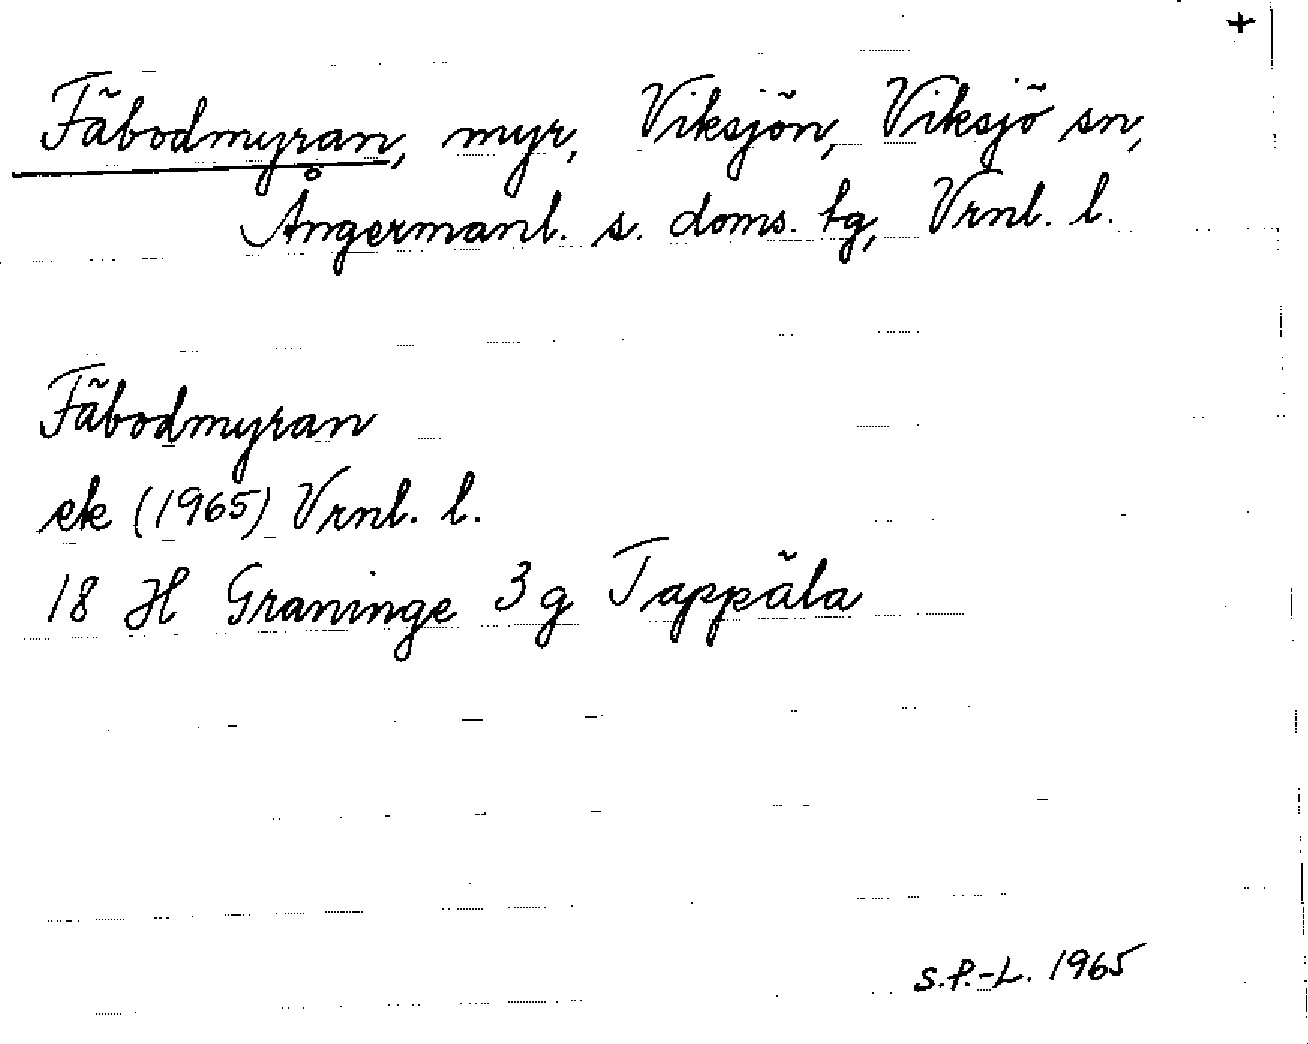 +
Fäbodmyran, myr, Viksjön, Viksjö sn,
Ångermanl. s. doms. tg, Vrnl. l.
Fäbodmyran
ek (1965) Vrnl. l.
18 H Graninge 3 g Tappåla
S.P.-L. 1965